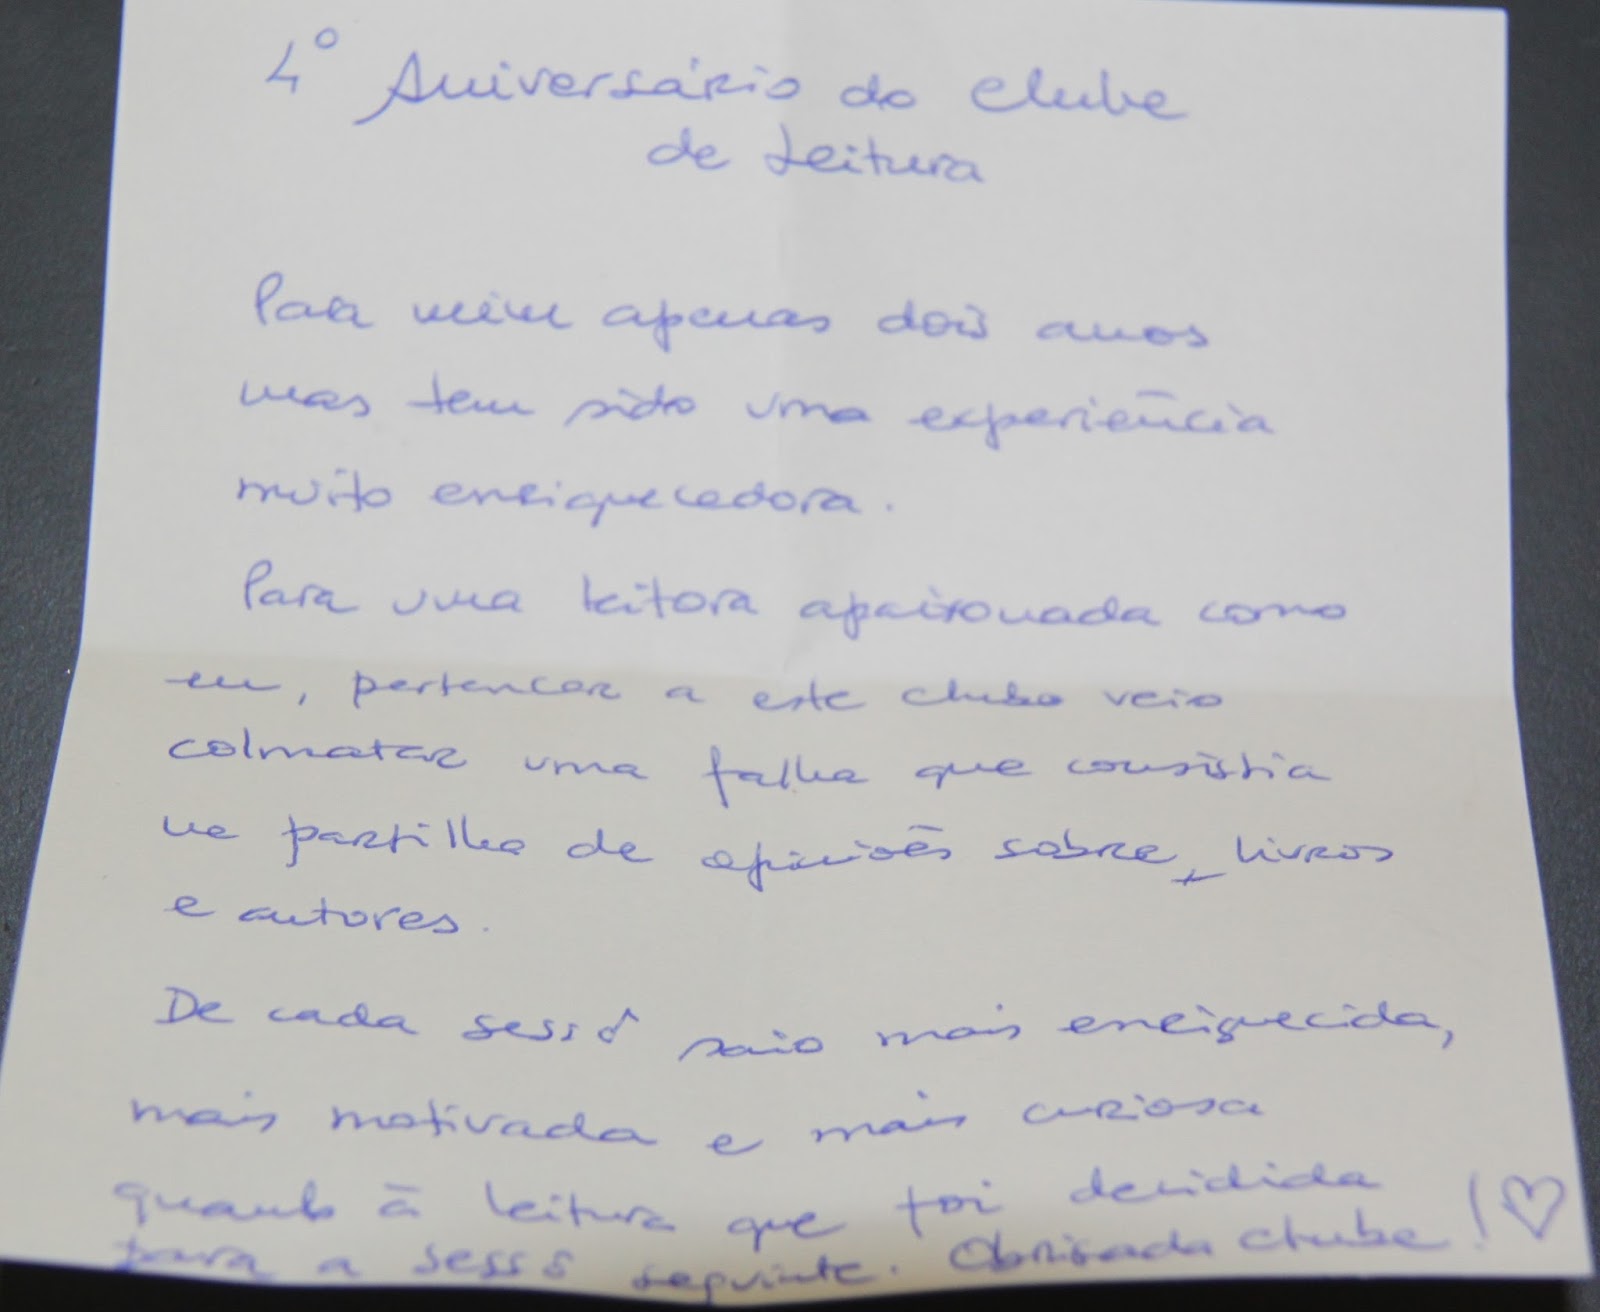 4º Aniversário do Clube
de Leitura
Para mim apenas dois anos
mas tem sido uma experiência
muito enriquecedora.
Para uma leitora apaixonada como
eu, pertencer a este clube veio
colmatar uma falha que consistia
na partilha de opiniões sobre livros
e autores.
De cada sessõ saio mais enriquecida,
mais motivada e mais curiosa
quanto à leitura que foi decidida
para a sessõ seguinte. Obrigada clube! ♡